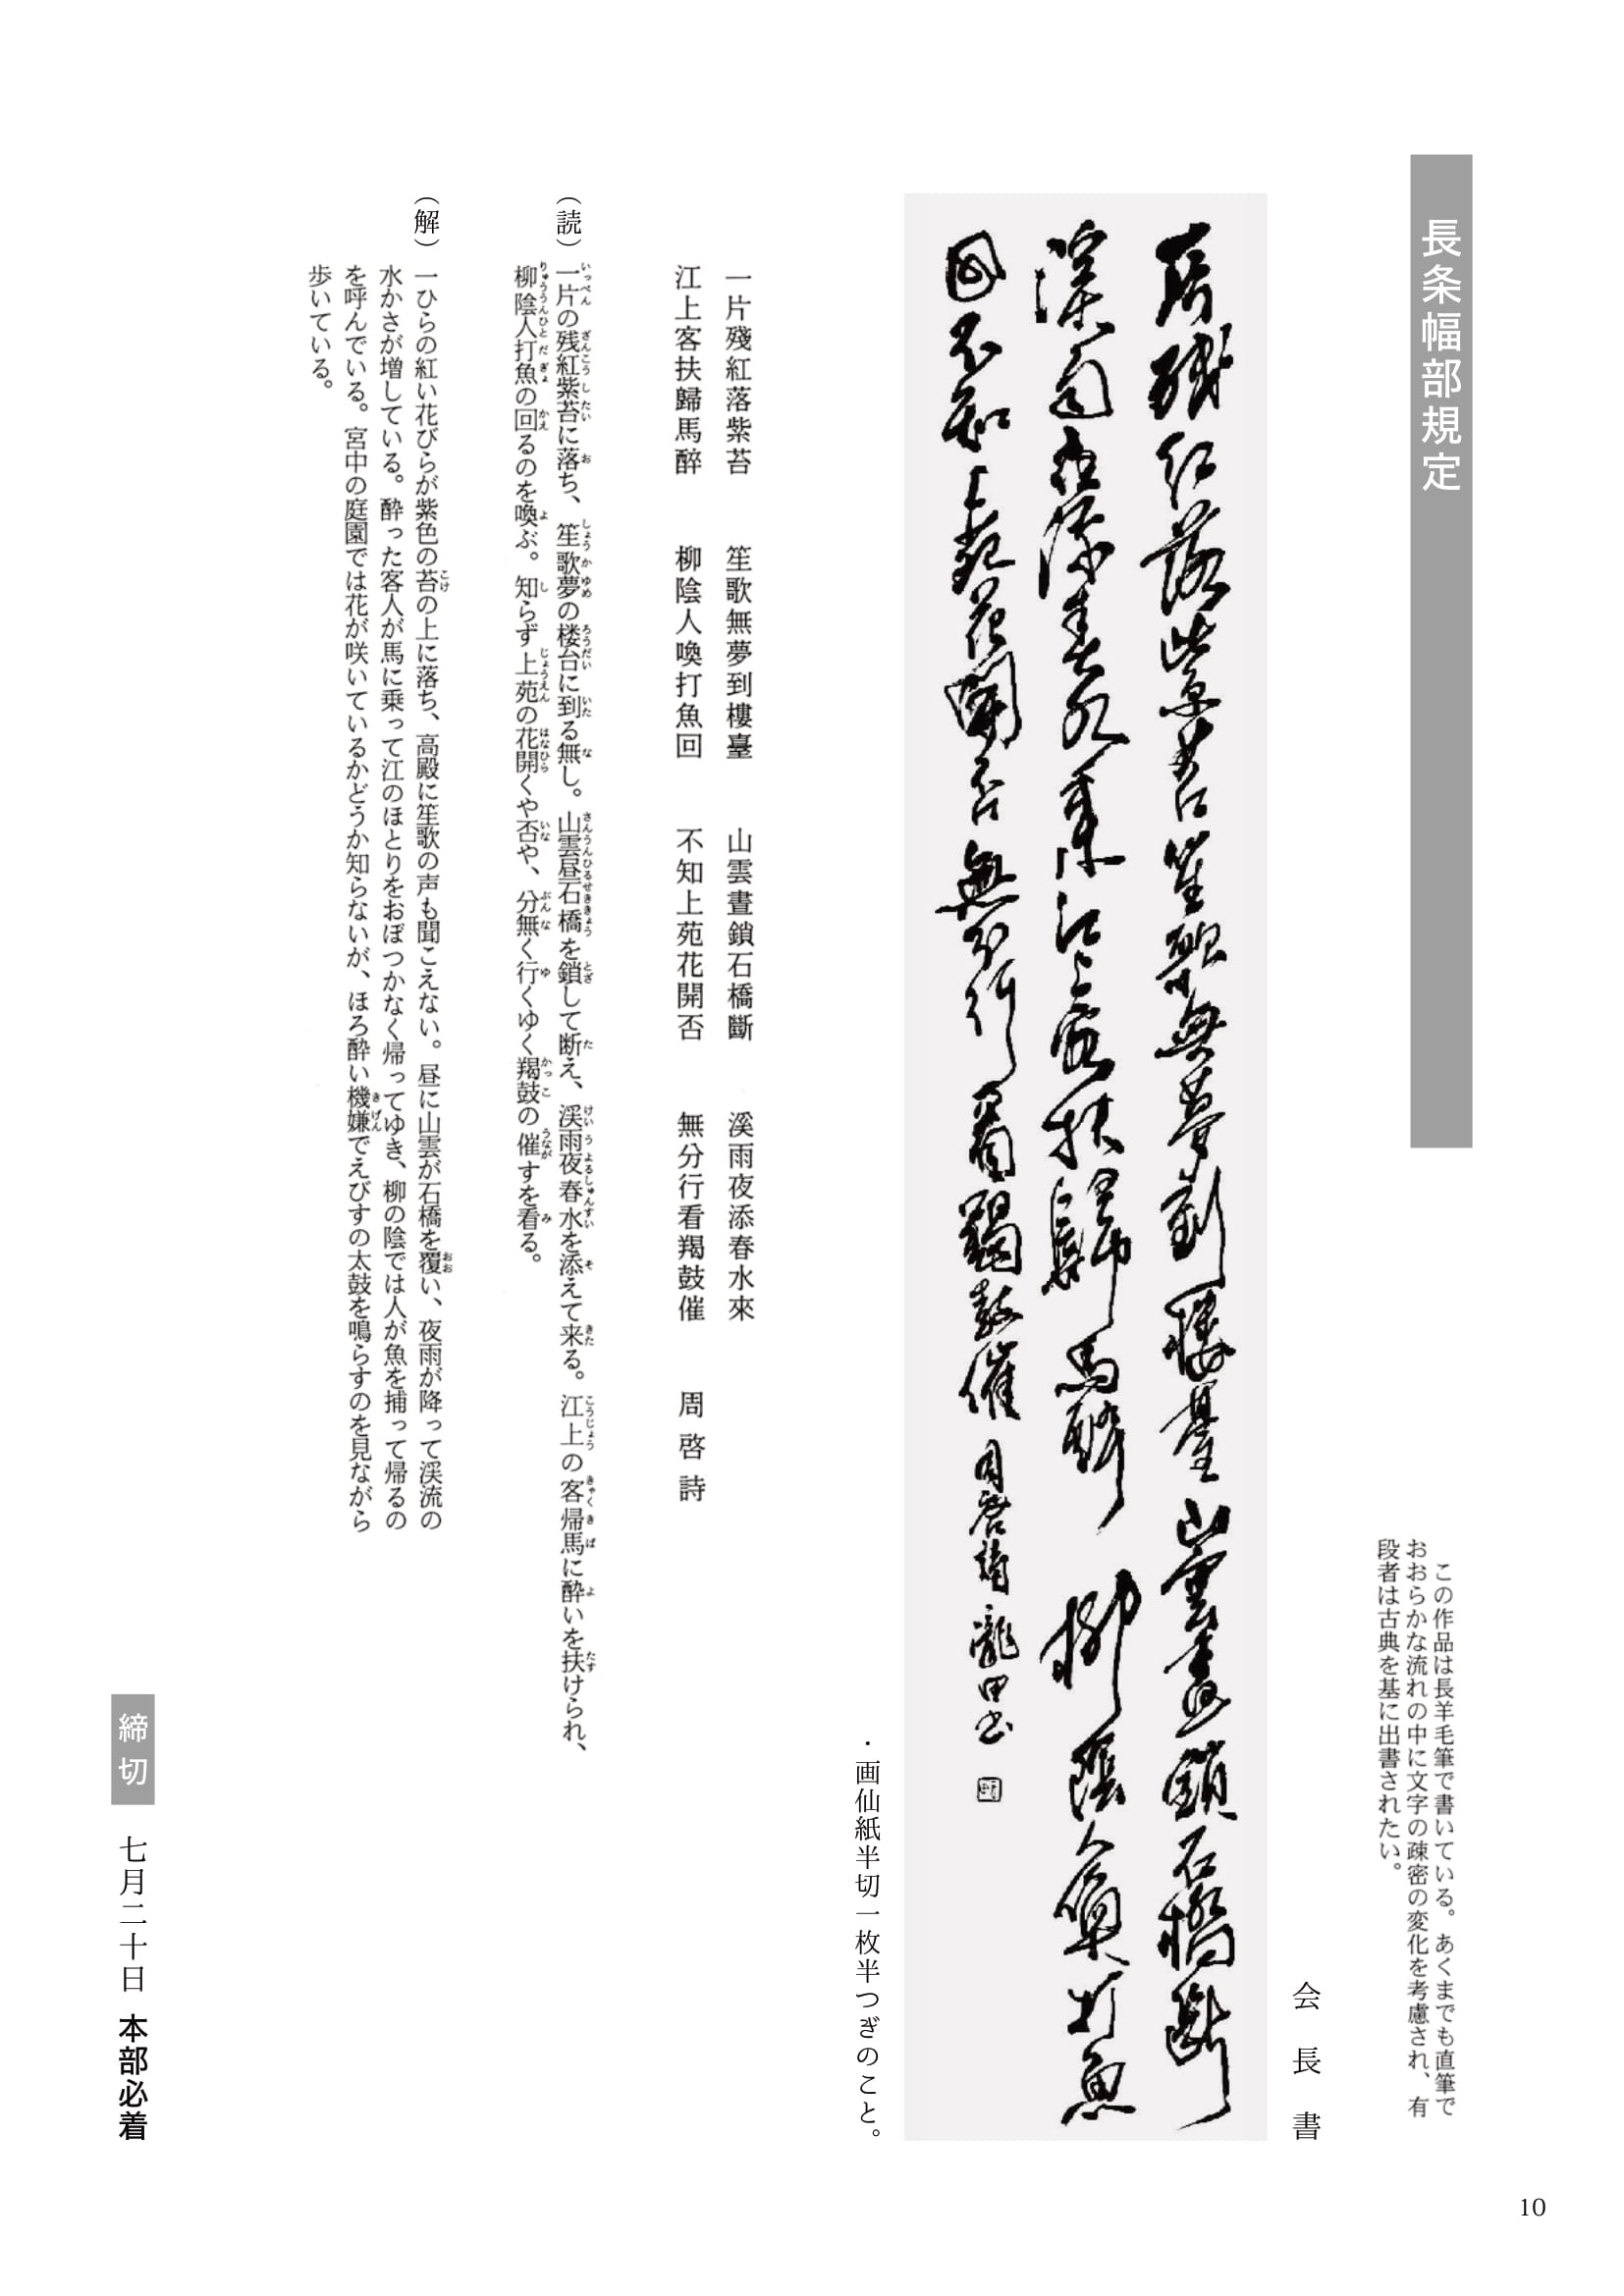 長条幅部規定
この作品は長羊毛筆で書いている。あくまでも直筆で
おおらかな流れの中に文字の疎密の変化を考慮され、有
段者は古典を基に出書されたい。
会長書
一片殘紅落紫苔笙歌無夢到樓臺山雲晝鎖石橋斷
溪雨夜添春水來江上客扶歸馬醉柳陰人喚打魚
回不知上苑花開否無分行看羯鼓催周啓詩龍田書
・画仙紙半切一枚半つぎのこと。
一片殘紅落紫苔 笙歌無夢到樓臺 山雲晝鎖石橋斷 溪雨夜添春水來
江上客扶歸馬醉 柳陰人喚打魚回 不知上苑花開否 無分行看羯鼓催 周啓詩
（読）一片の残紅紫苔に落ち、笙歌夢の楼台に到る無し。山雲昼石橋を鎖して断え、渓雨夜春水を添えて来る。江上の客帰馬に酔いを扶けられ、
柳陰人打魚の回るのを喚ぶ。知らず上苑の花開くや否や、分無く行くゆく羯鼓の催すを看る。
（解）一ひらの紅い花びらが紫色の苔の上に落ち、高殿に笙歌の声も聞こえない。昼に山雲が石橋を覆い、夜雨が降って渓流の
水かさが増している。酔った客人が馬に乗って江のほとりをおぼつかなく帰ってゆき、柳の陰では人が魚を捕って帰るの
を呼んでいる。宮中の庭園では花が咲いているかどうか知らないが、ほろ酔い機嫌でえびすの太鼓を鳴らすのを見ながら
歩いている。
締切 七月二十日 本部必着
10